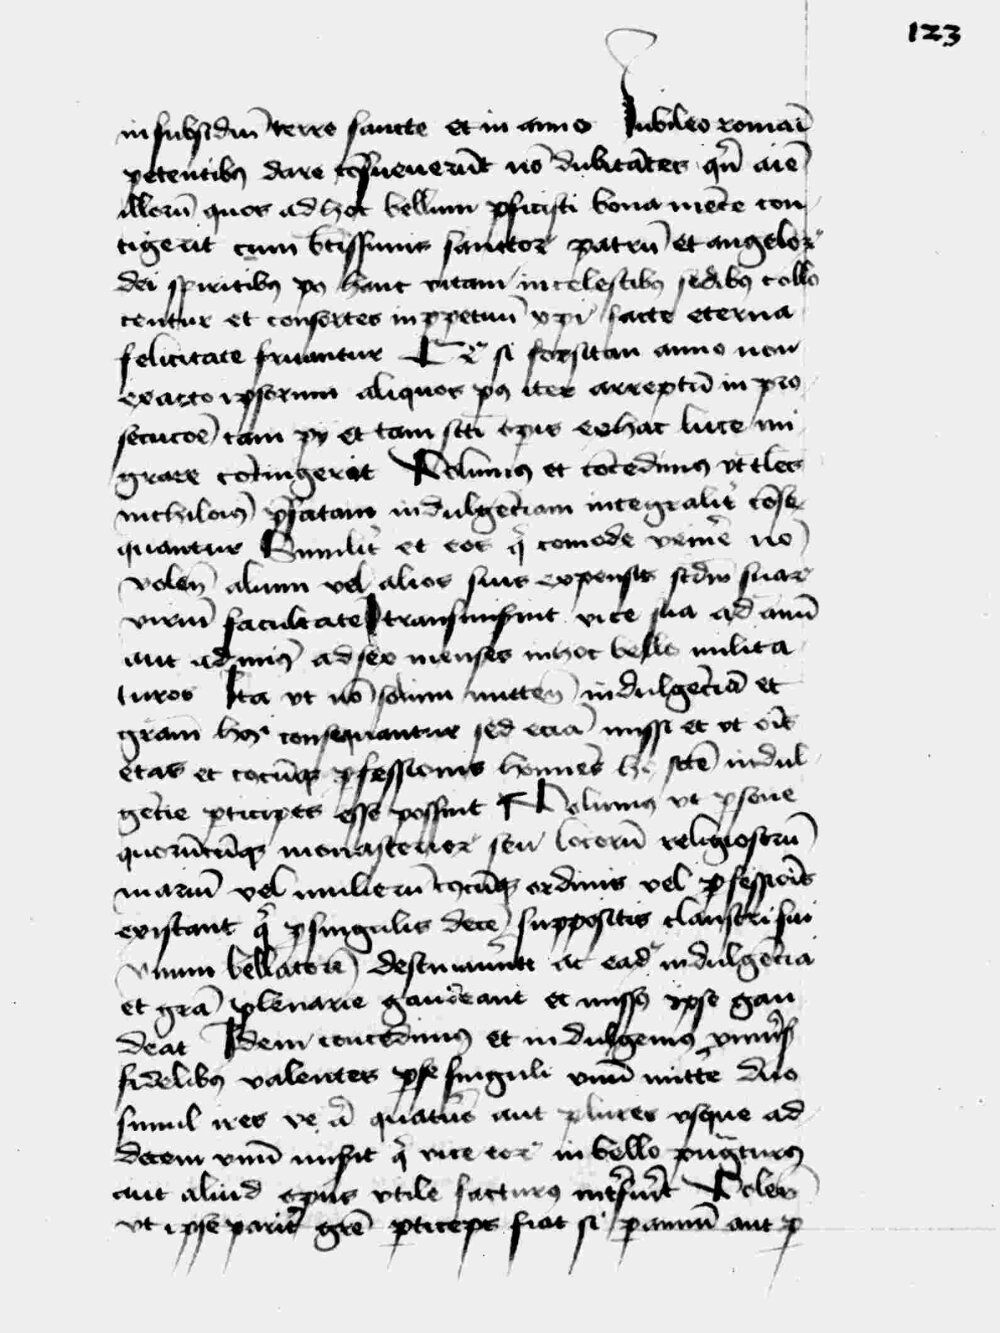 123
in subsidiu̅ terre sancte et in anno Iubileo romam̅
petentibus dare co̅sueueru̅t no̅ dubita̅tes qn̅ aie̅
illoru̅ quos ad hoc bellum pficisci bona me̅te con
tigerit cum btissimis sanctor patru̅ et angelor
dei spiritibus post hanc vitam in celestibus sedibus collo
centur et consortes in ppetuu̅ xpi facte eterna
felicitate fruantur Et si forsitan anno non
exacto ipsorum aliquos post iter arreptu̅ in pro
secucoe̅ tam pij et tam scti̅ opis ex hac luce mi
grare co̅tingerit Volumus et co̅cedimus vt tles
nichilomi̅ p̅fatam indulge̅ciam integralit co̅se
quantur Similit et eos q̅ comode venire no̅
volen̅ alium vel alios suis expensis scdm suar
viriu̅ facultate̅ transmisint vice sua ad annu̅
aut ad min̅ ad sex menses in hoc bello milita
turos Ita vt no̅ solum mitten̅ indulge̅cia̅ et
gram̅ hmoi consequantur sed ecia̅ missi et vt ois̅
etas et cuiuscu̅q pfessionis homines hui scte̅ indul
ge̅cie pticipes esse possint Volumus vt psone
quoru̅cu̅q monasterior seu locoru̅ religiosoru̅
mariu̅ vel mulieru̅ cuiuscu̅q ordinis vel pfessiois̅
existant q̅ p singulis dece̅ suppositis claustri sui
vnum bellatore̅ destinauint ac ead indulge̅cia
et gra̅ plenarie gaudeant et missus ipse gau
deat Idem concedimus et indulgemus vniuſ
fidelibus valentes p se singuli vnu̅ mitte̅ duo
simul tres ve a̅ quatuor aut plures vsque ad
decem vnu̅ misint q̅ vice eor in bello pugnturus
aut aliud opus vtile facturus intsint Volen̅
vt ipse parit gre̅ pticeps fiat si p annu̅ aut p